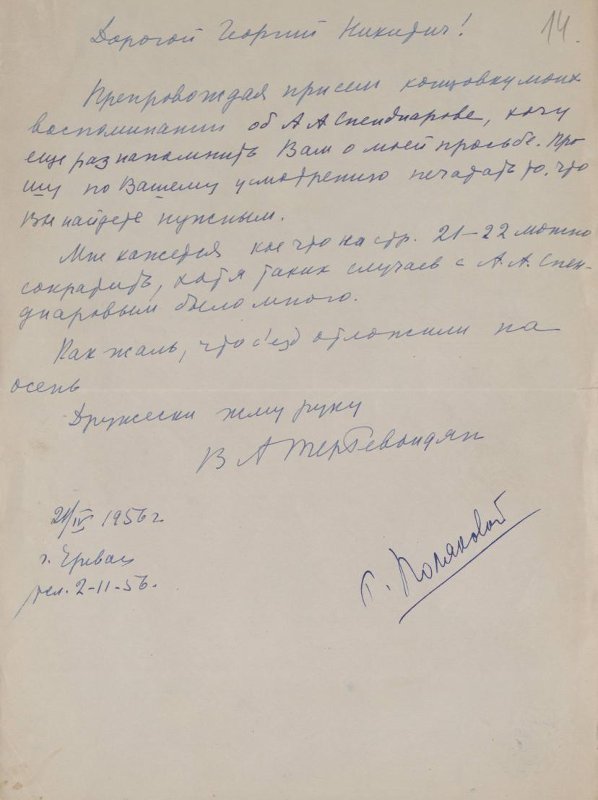 14.
Дорогой Георгий Никитич!
Препровождая присем концовку моих
воспоминании об А А Спендиарове, хочу
еще раз напомнить Вам о моей просьбе. Про
шу по Вашему усмотрению печатать то. что
Вы найдете нужным.
Мне кажется кое что на стр. 21-22 можно
сократить, хотя таких случаев с А. А. Спен-
диаровым было много.
Как жаль, что с'езд отложили на
осень
Дружески жму руку
В А ТерГевондян
21/IV 1956 г.
г. Ереван
тел. 2-11-56.
Г. Поляковой